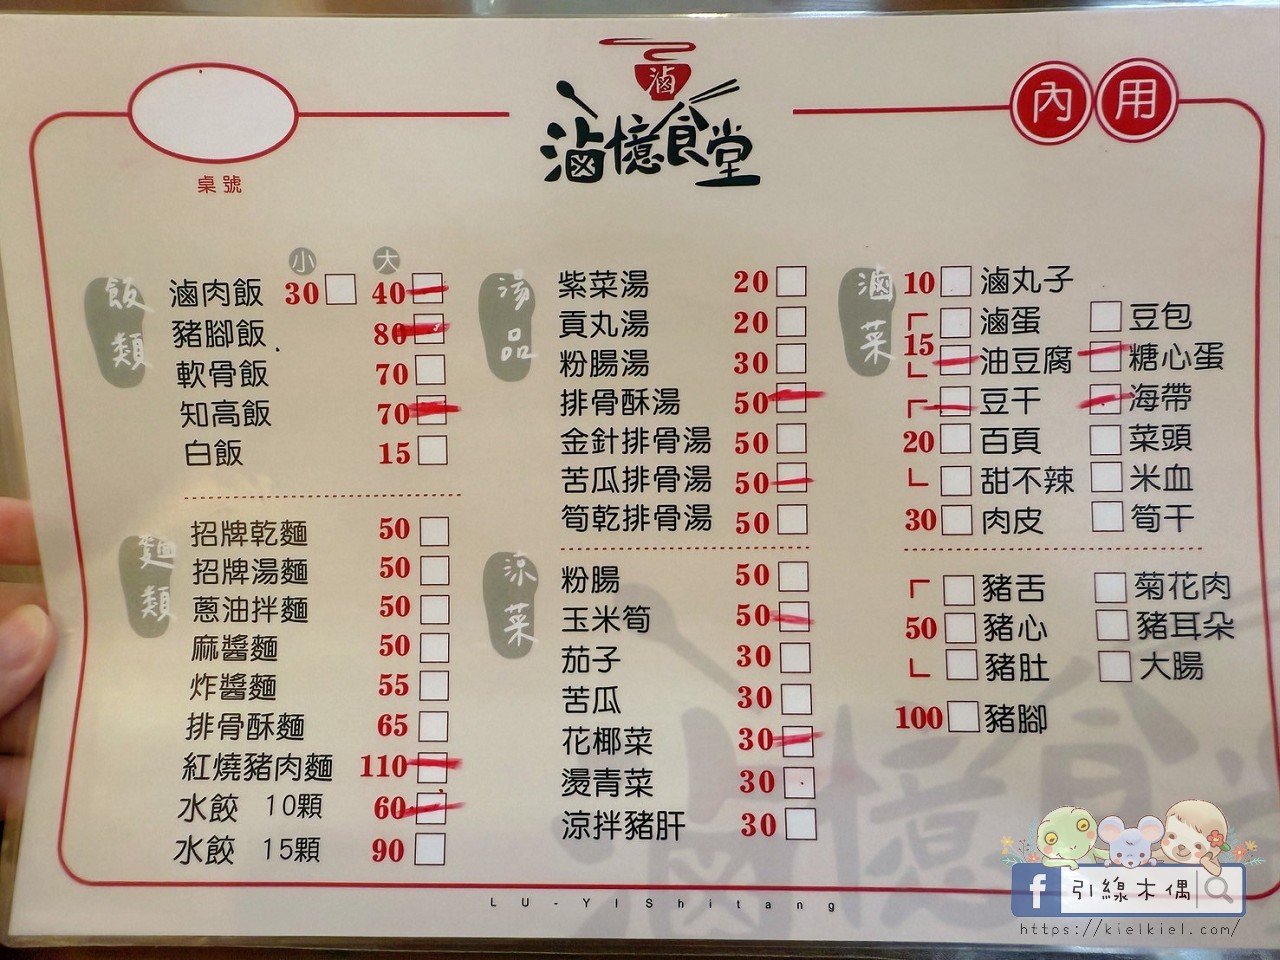 滷
滷憶食堂
內用
桌號
飯類
小 大
滷肉飯 30 40
豬腳飯 80
軟骨飯 70
知高飯 70
白飯 15
麵類
招牌乾麵 50
招牌湯麵 50
蔥油拌麵 50
麻醬麵 50
炸醬麵 55
排骨酥麵 65
紅燒豬肉麵 110
水餃 10顆 60
水餃 15顆 90
湯品
紫菜湯 20
貢丸湯 20
粉腸湯 30
排骨酥湯 50
金針排骨湯 50
苦瓜排骨湯 50
筍乾排骨湯 50
涼菜
粉腸 50
玉米筍 50
茄子 30
苦瓜 30
花椰菜 30
燙青菜 30
涼拌豬肝 30
滷菜
10 滷丸子
滷蛋 豆包
15 油豆腐 糖心蛋
豆干 海帶
20 百頁 菜頭
甜不辣 米血
30 肉皮 筍干
豬舌 菊花肉
50 豬心 豬耳朵
豬肚 大腸
100 豬腳
LU-YIShitang
滷憶食堂
f 引線木偶
https://kielkiel.com/